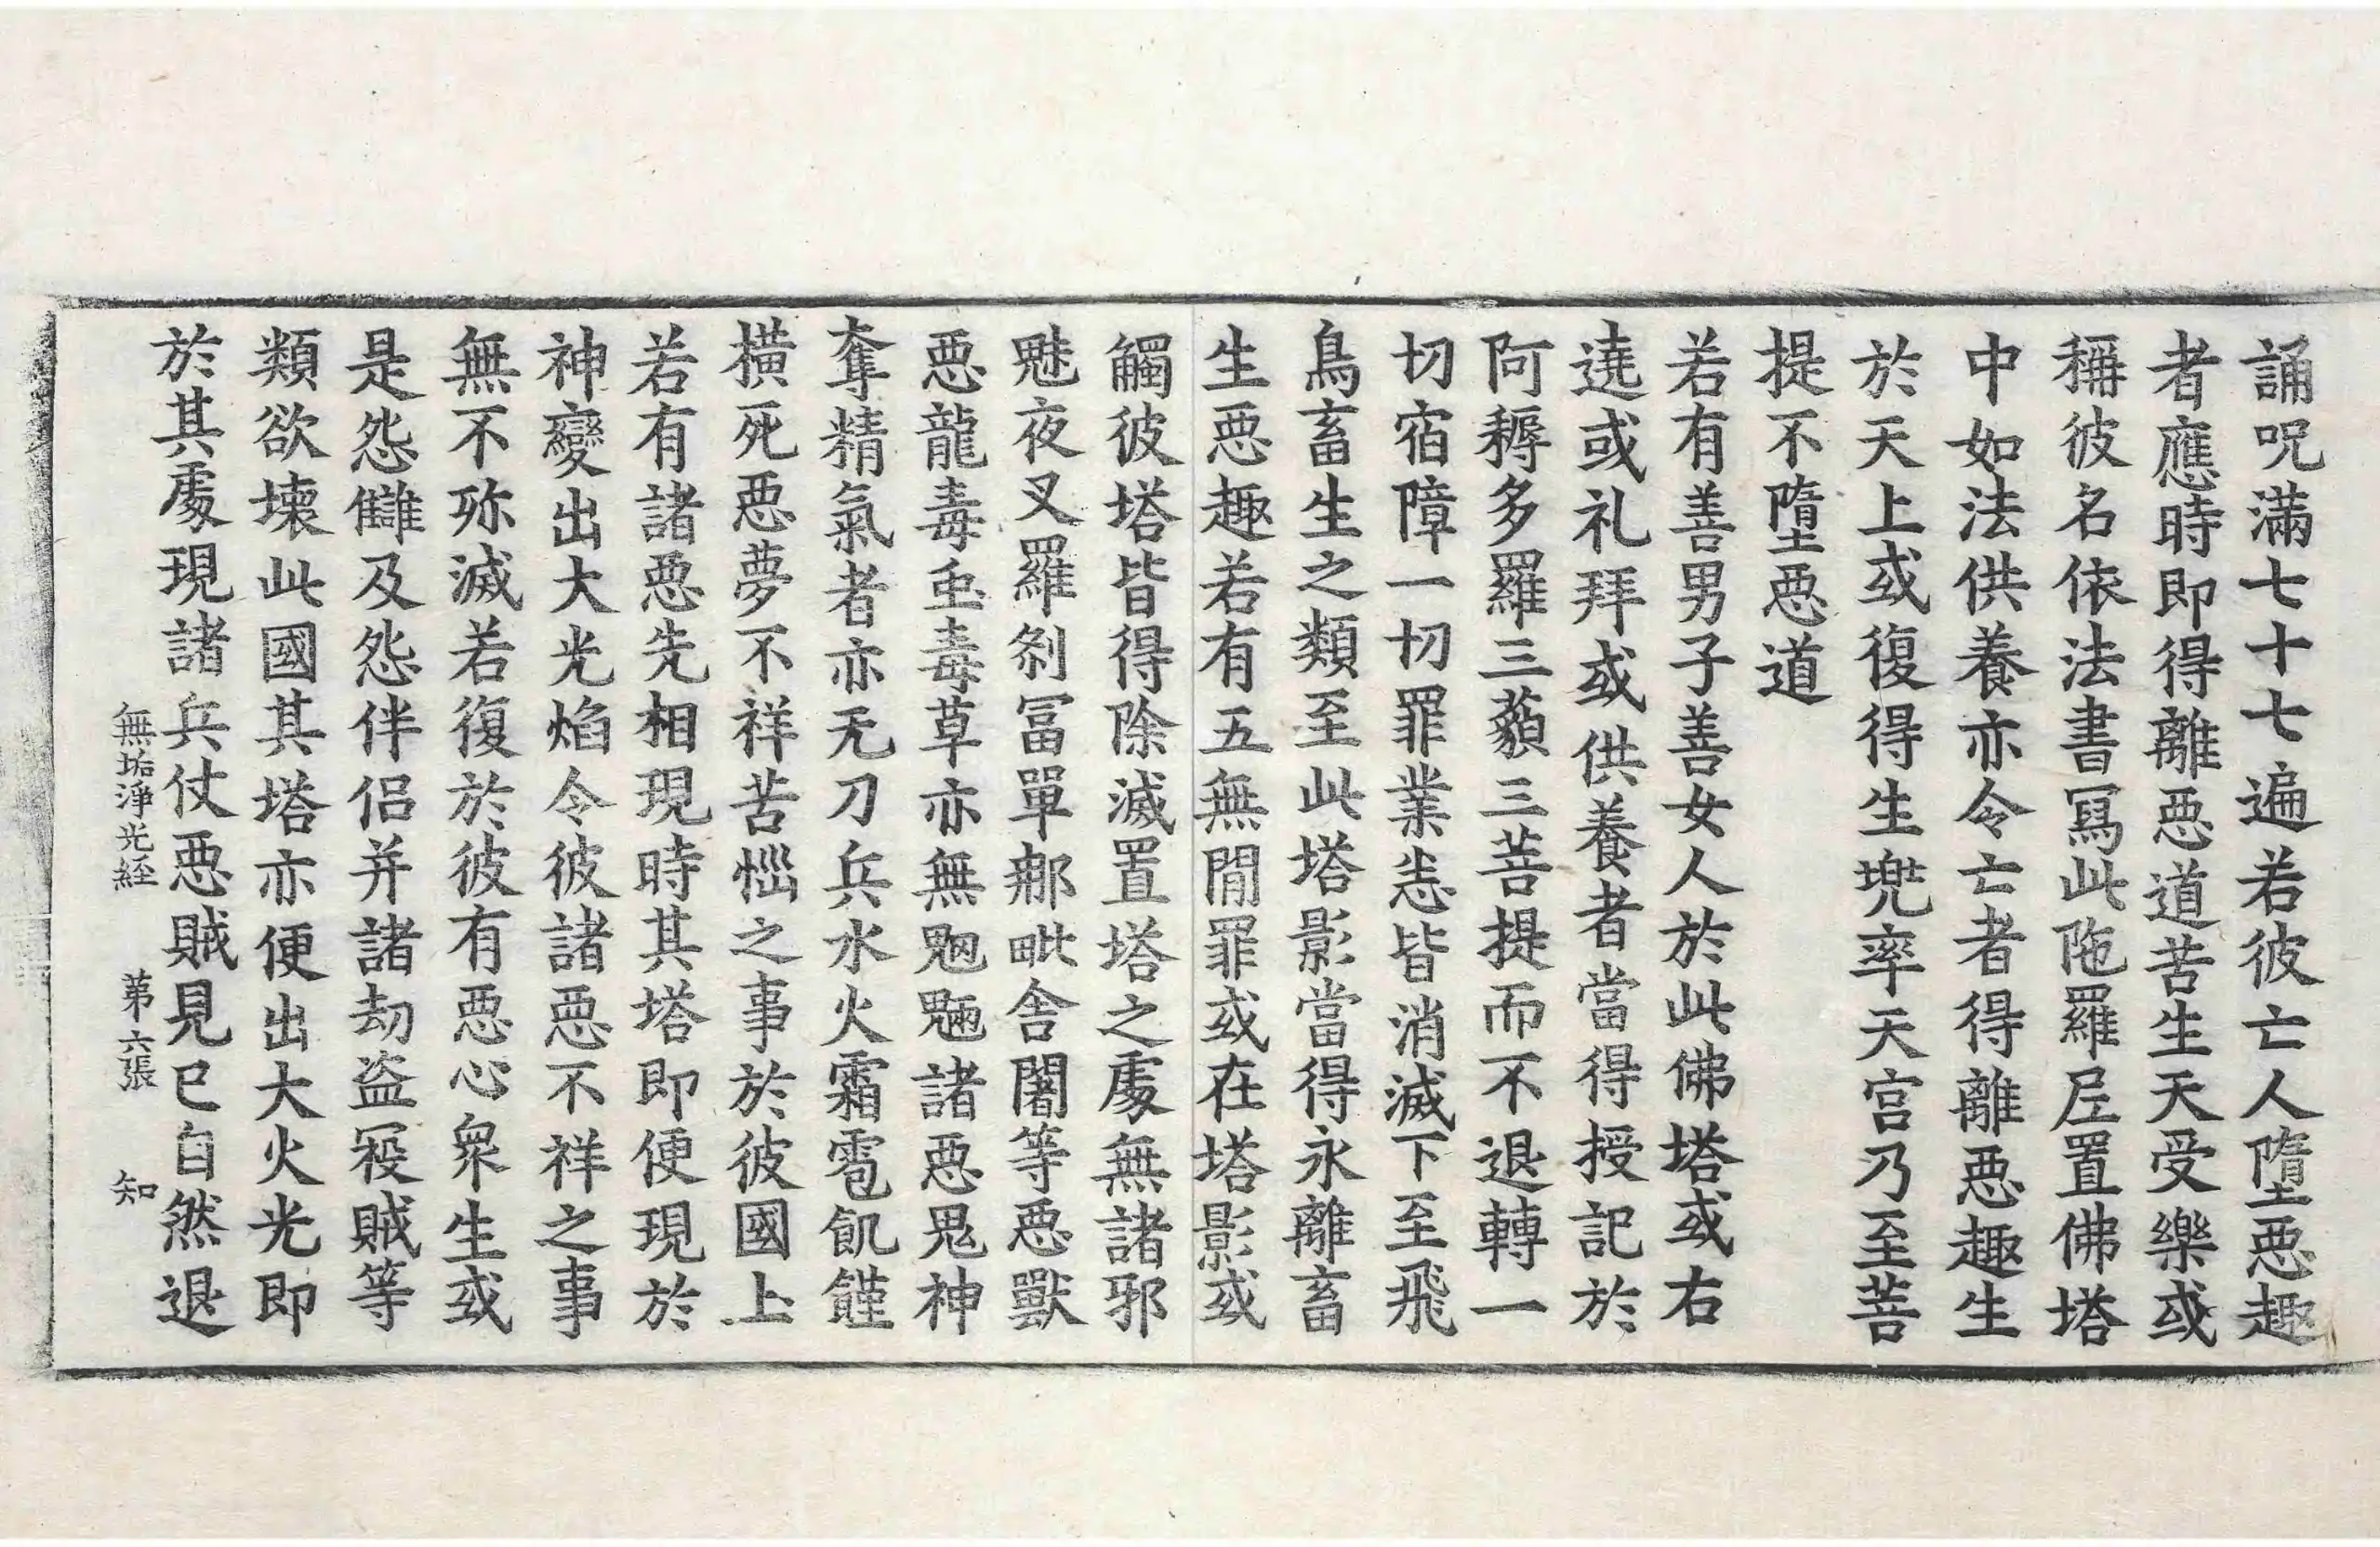 誦呪滿七十七遍若彼亡人墮惡趣
者應時即得離惡道苦生天受樂或
稱彼名依法書寫此陁羅尼置佛塔
中如法供養亦令亡者得離惡趣生
於天上或復得生兜率天宮乃至菩
提不墮惡道
若有善男子善女人於此佛塔或右
遶或礼拜或供養者當得授記於
阿耨多羅三藐三菩提而不退轉一
切宿障一切罪業悉皆消滅下至飛
鳥畜生之類至此塔影當得永離畜
生惡趣若有五無間罪或在塔影或
觸彼塔皆得除滅置塔之處無諸邪
魅夜叉羅剎冨單那毗舍闍等惡獸
惡龍毒虫毒草亦無魍魎諸惡鬼神
奪精氣者亦无刀兵水火霜雹飢饉
橫死惡夢不祥苦惱之事於彼國上
若有諸惡先相現時其塔即便現於
神變出大光焰令彼諸惡不祥之事
無不殄滅若復於彼有惡心衆生或
是怨讎及怨伴侶并諸劫盜寇賊等
類欲壞此國其塔亦便出大火光即
於其處現諸兵仗惡賊見已自然退
無垢淨光經 第六張 知